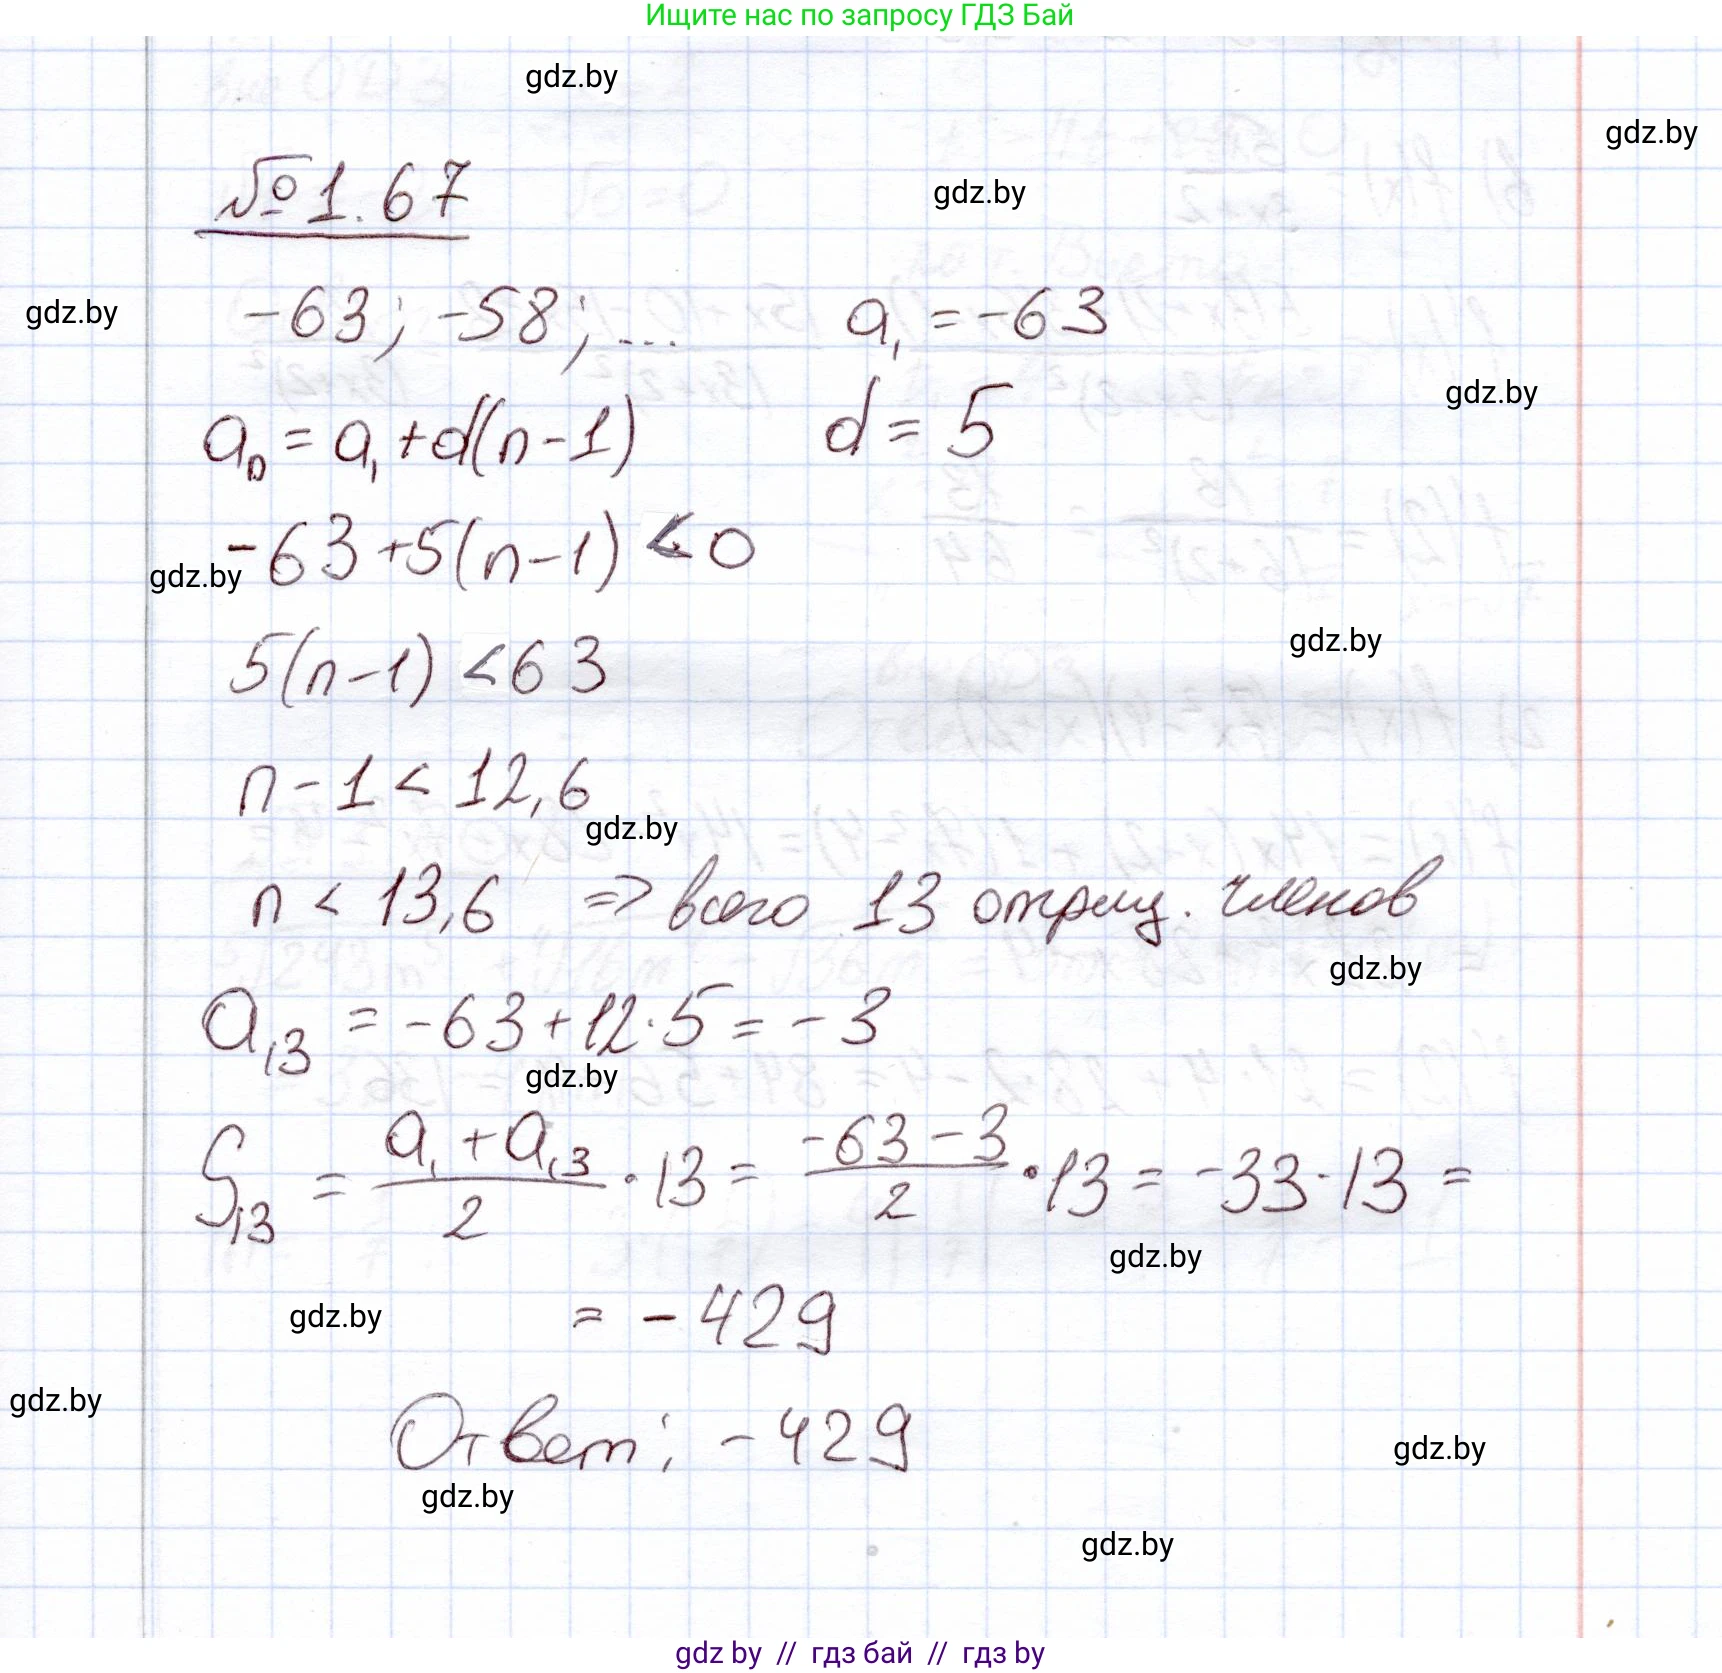 Ищите нас по запросу ГДЗ Бай
gdz.by
gdz.by
№1.67
gdz.by
-63; -58; ... a₁ = -63
gdz.by
gdz.by
aₙ = a₁ + d(n-1) d = 5
-63 + 5(n-1) < 0
gdz.by
gdz.by
5(n-1) < 63
n - 1 < 12,6
gdz.by
n < 13,6 => всего 13 отриц. членов
gdz.by
a₁₃ = -63 + 12·5 = -3
gdz.by
S₁₃ = (a₁ + a₁₃)/2 · 13 = (-63 - 3)/2 · 13 = -33 · 13 =
gdz.by
gdz.by
= -429
gdz.by
Ответ; -429
gdz.by
gdz.by
gdz.by
gdz by // гдз бай // гдз by